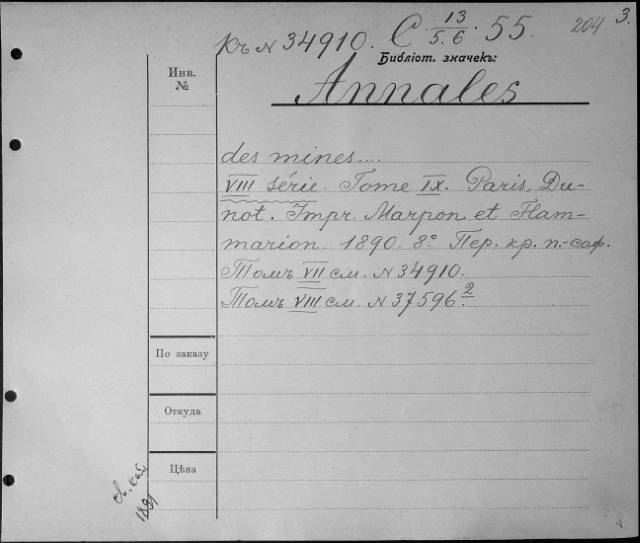 Къ N 34910. C 13/5.6. 55. 204 3.
Библіот. значекъ:
Инв.
№
Annales
des mines...
VIII série. Tome IX. Paris, Du-
not. Impr. Marpon et Flam-
marion. 1890. 8° Пер. кр. п.-саф.
Томъ VII см. N 34910.
Томъ VIII см. N 37596.2
По заказу
Откуда
Цѣна
1891